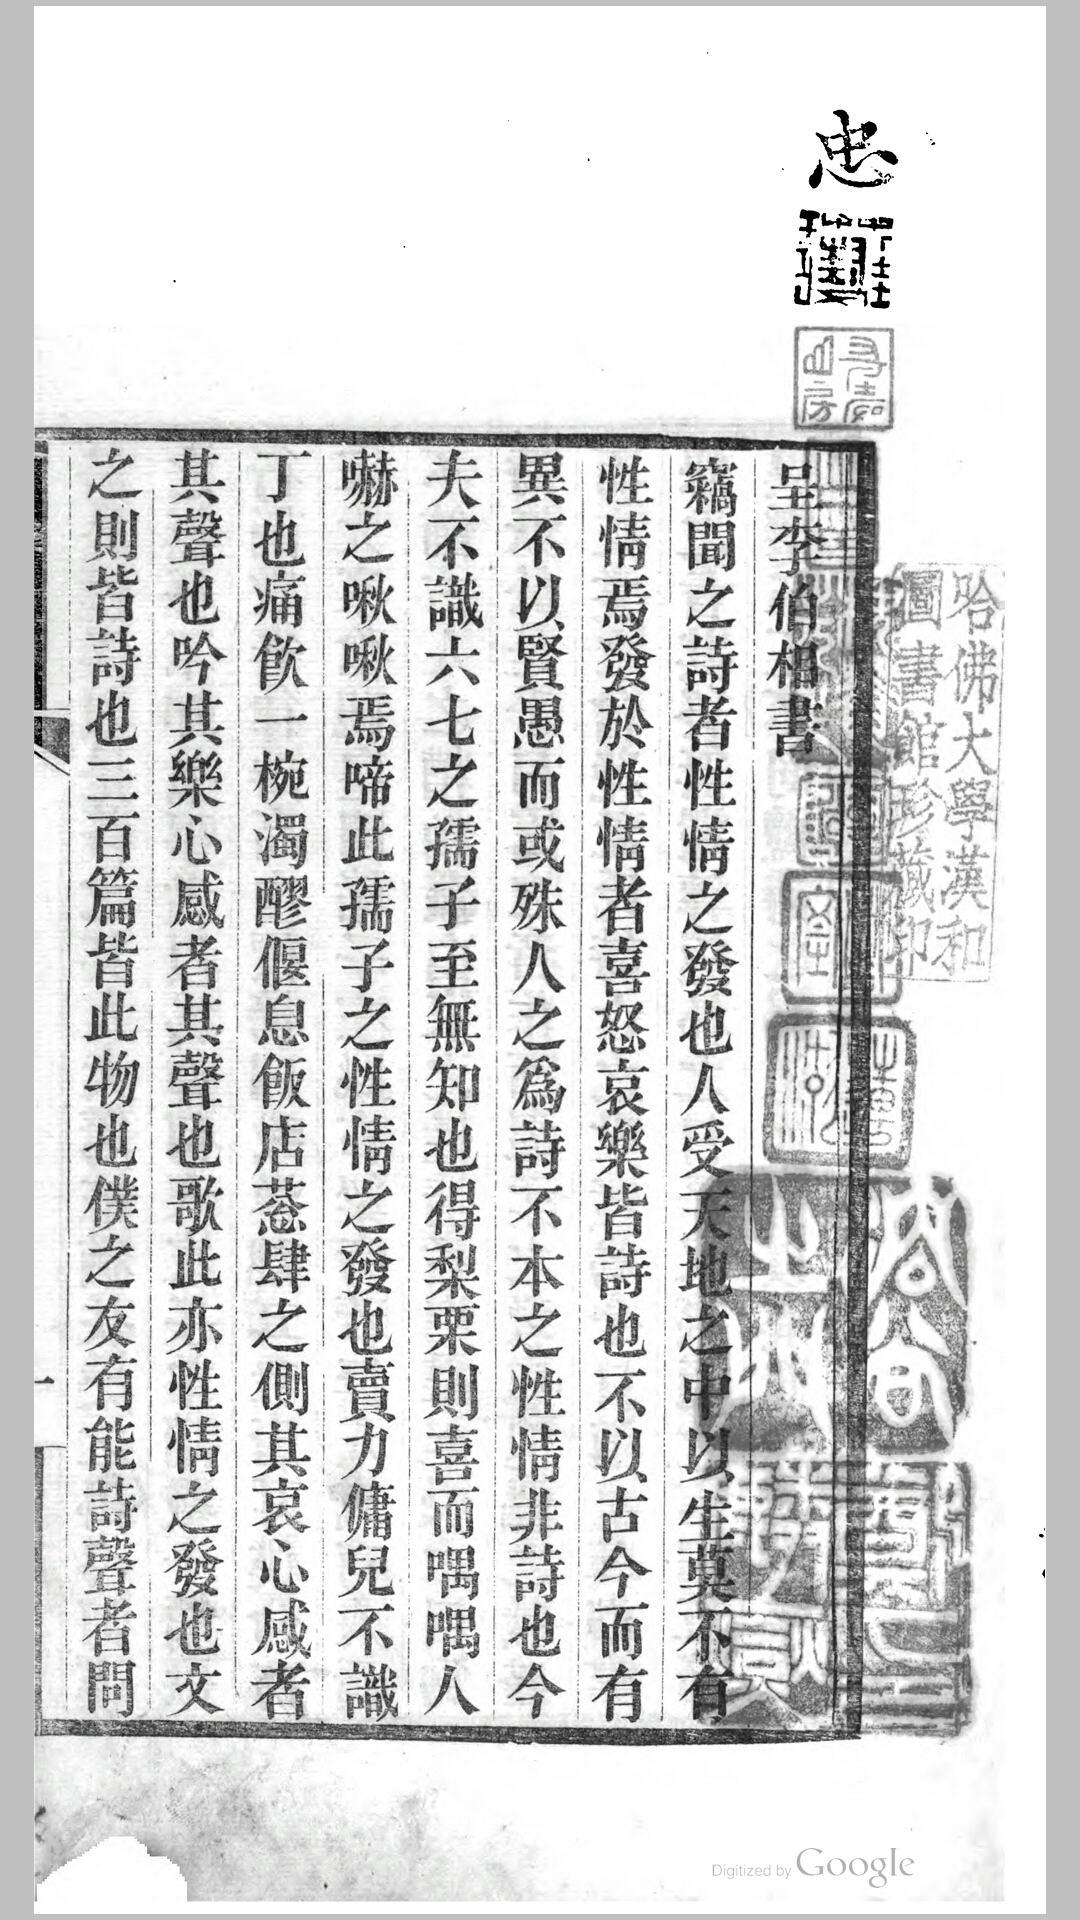 忠
呈李伯相書
竊聞之詩者性情之發也人受天地之中以生莫不有
性情焉發於性情者喜怒哀樂皆詩也不以古今而有
異不以賢愚而或殊人之爲詩不本之性情非詩也今
夫不識六七之孺子至無知也得梨栗則喜而喁喁人
嚇之啾啾焉啼此孺子之性情之發也賣力傭兒不識
丁也痛飮一椀濁醪偃息飯店菍肆之側其哀心感者
其聲也吟其樂心感者其聲也歌此亦性情之發也文
之則皆詩也三百篇皆此物也僕之友有能詩聲者問
一
哈佛大學漢和
圖書館珍藏印
Digitized by Google